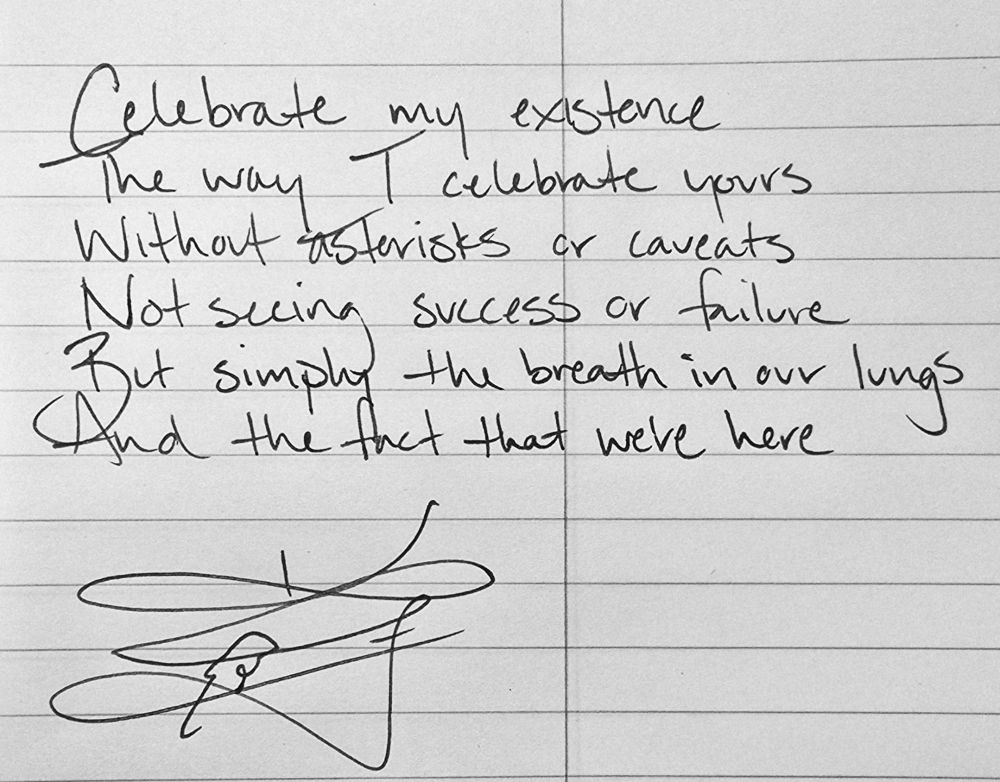 Celebrate my existence
The way I celebrate yours
Without asterisks or caveats
Not seeing success or failure
But simply the breath in our lungs
And the fact that we're here